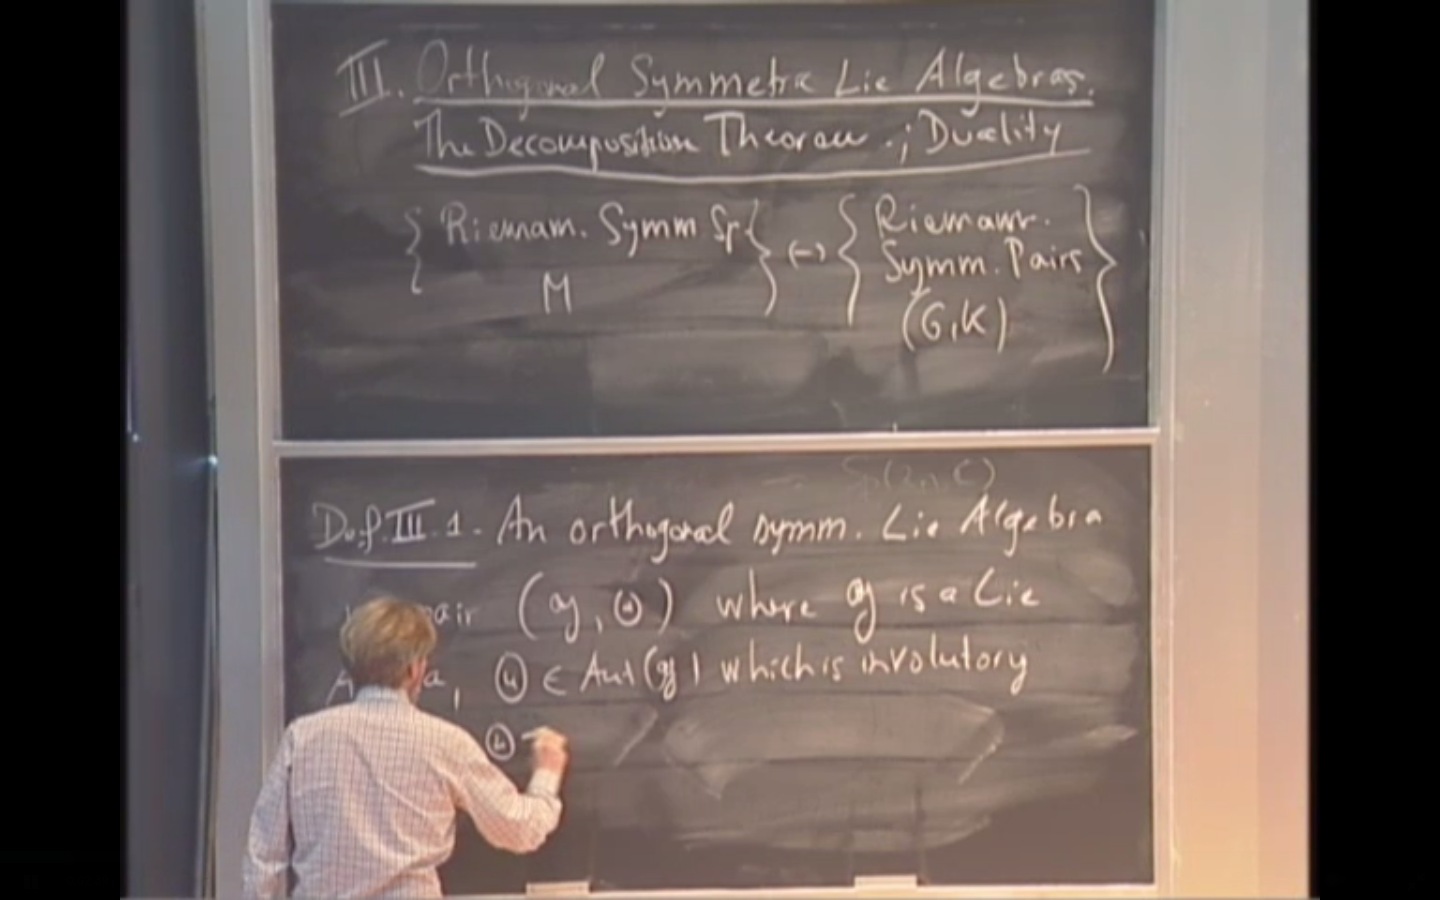 III. Orthogonal Symmetric Lie Algebras.
The Decomposition Theorem.; Duality
{ Riemann. Symm. Sp } ↔ { Riemann.
Symm. Pairs }
M
(G,K)
Sp(2n, C)
Def. III.1. An orthogonal symm. Lie Algebra
air (𝔤, Θ) where 𝔤 is a Lie
A a, Θ ∈ Aut(𝔤) which is involutory
Θ